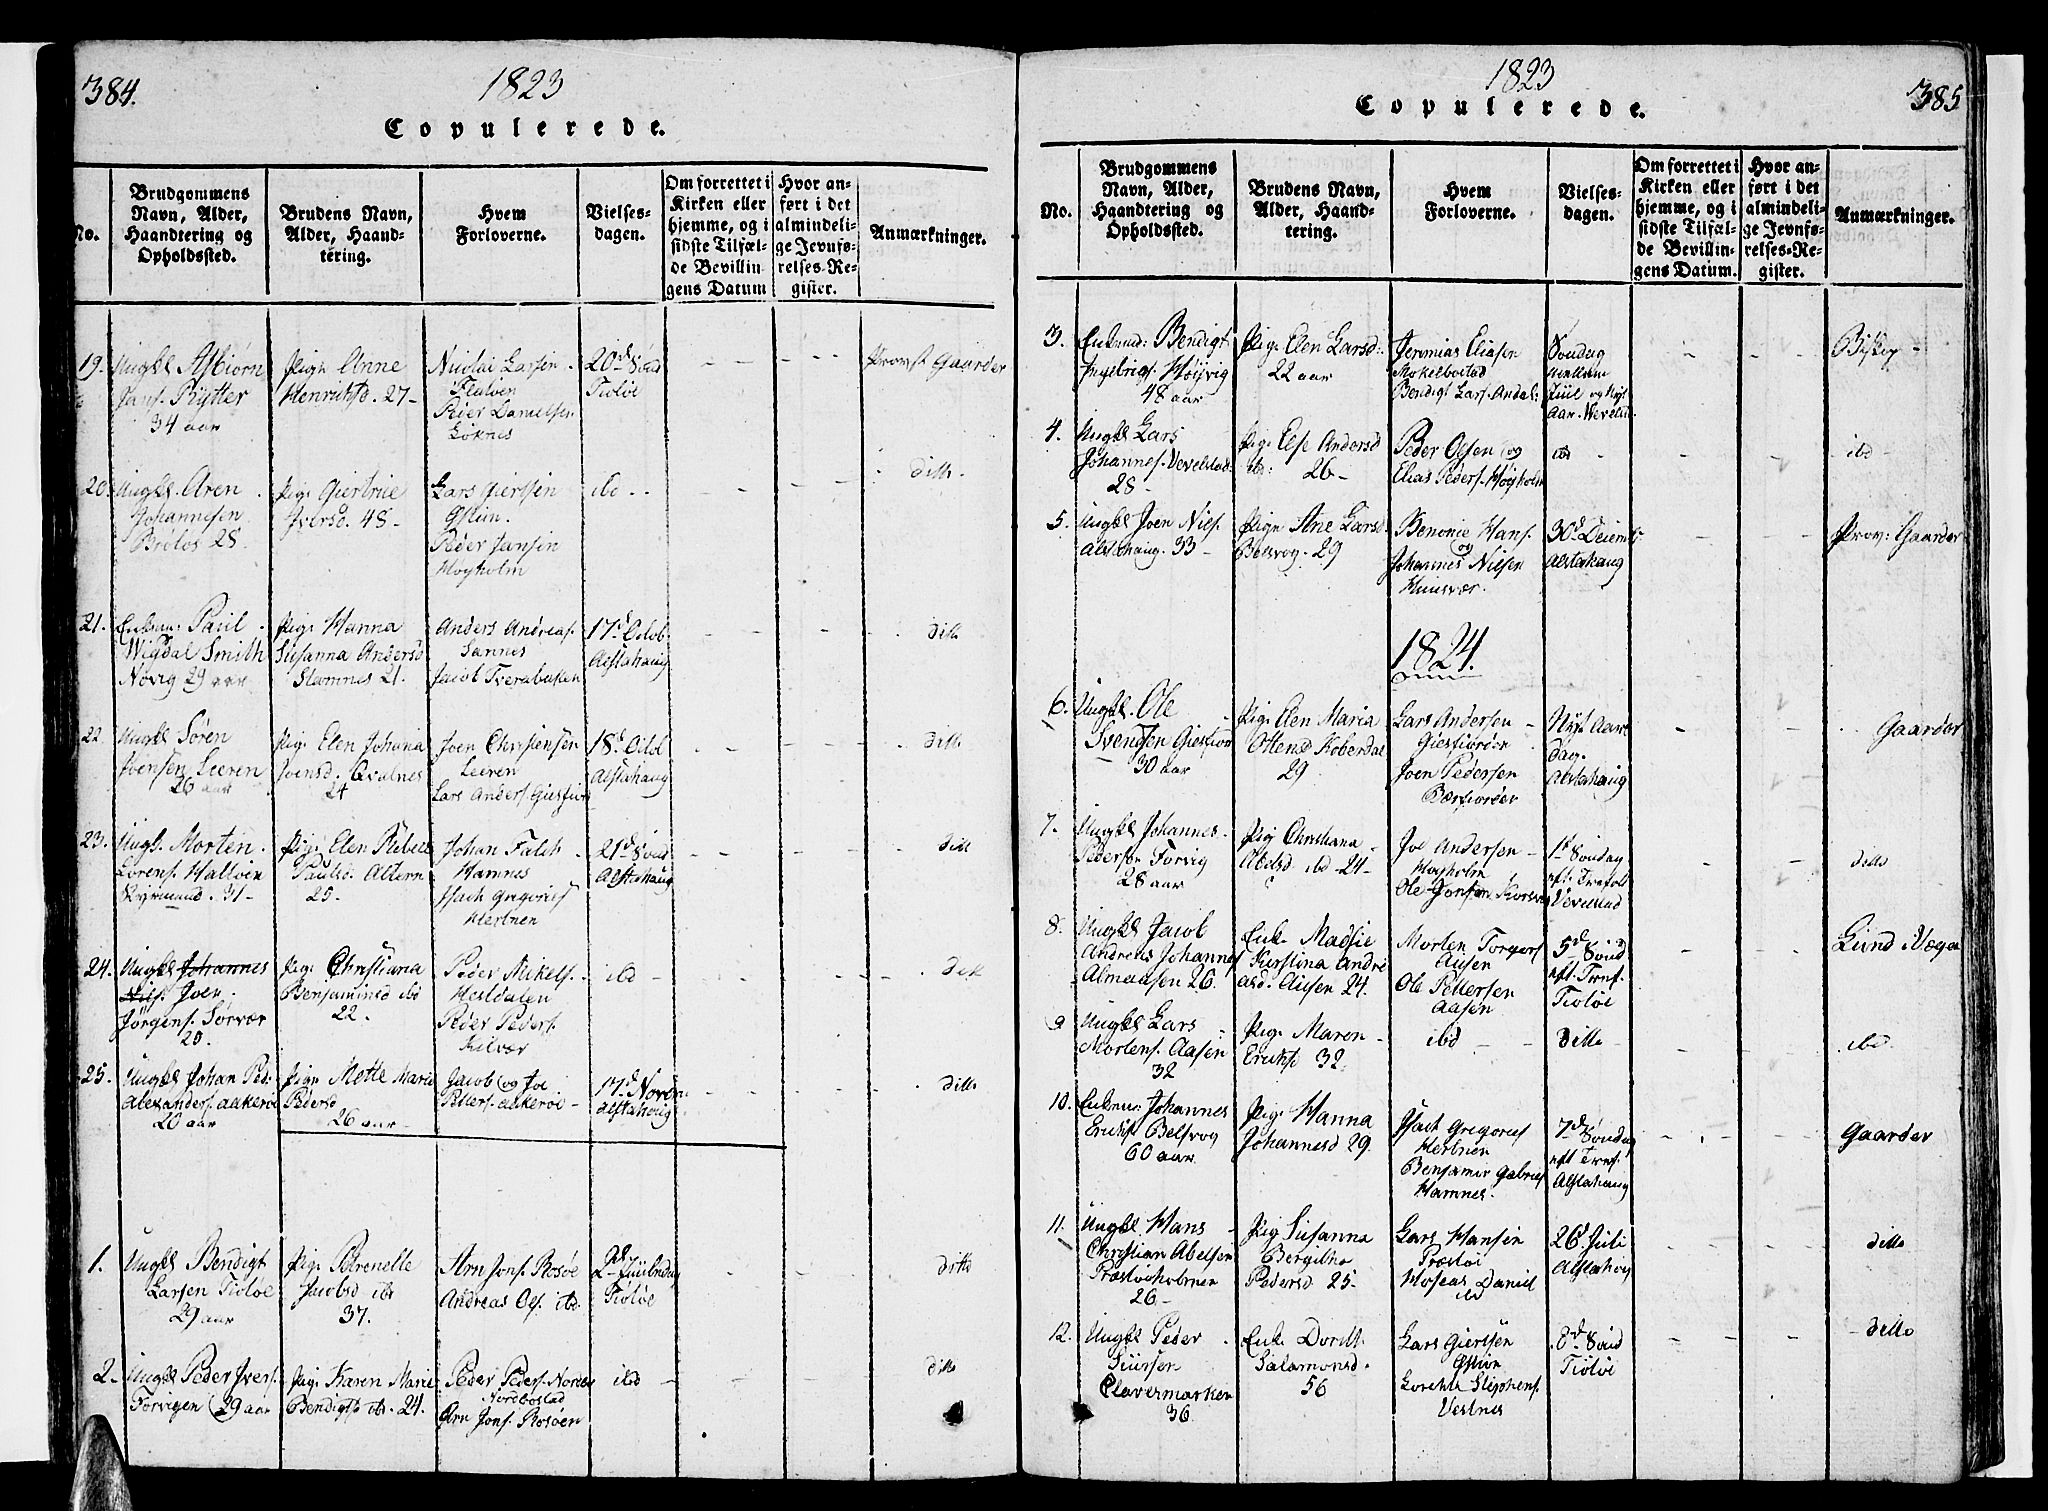 384.
1823
Copulerede.
No.
Brudgommens
Navn, Alder,
Haandtering og
Opholdssted.
Brudens Navn,
Alder, Haand-
tering.
Hvem
Forloverne.
Vielses-
dagen.
Om forrettet i
Kirken eller
hjemme, og i
sidste Tilfæl-
de Bevillin
gens Datum
Hvor an-
ført i det
almindeli-
ge Jevnfø-
relses-Re-
gister.
Anmærkninger.
19.
Ungkl Asbiörn
Jans. Rytter
34 aar
Pige Anne
Henriksd. 27 -
Nicolai Larsen
Peder Danielsen
Söknes
20d Sönd
Tiötöe
Provst Gaarder
20.
Ungkl Aren
Johannesen
Brötös 28.
Pig: Giertrue
Iversd. 48 -
Lars Giersen
Peder Jansen
Høyholm
ibd
ditto
21.
Enkm: Paul
Wigdal Smith
Növig 29 aar
Pig: Hanna
Susanna Andersd
Stamnes 21.
Anders Andreas.
Sannes
Jacob Tverabakken
17d Octob.
Alstahaug
ditto
22.
Ungkl Sören
Joensen Leeren
26 aar
Pig: Elen Johana
Joensd. Qvalnes
24
Joen Christensen
Leeren
Lars Anders. Giesfior
18d Octb
Alstahaug
ditto
23.
Ungk. Morten
Lorens. Hatlöen
31 -
Pig: Elen Rebek
Paulsd. Altern
25.
Johan Falch
Hamnes
Isach Gregories
Herbnen
21d Sönd
Alstahaug
ditt
24.
Ungkl Johannes
Nils. Joen
Jörgens. Sörvær
Pig: Christiana
Benjaminsd ibd
22.
Peder Mikels.
Hestdalen
Peder Peders.
Kilvær
ibd -
dito
25.
Ungkl Johan Ped:
Alexanders. Aakeröe
20 aar
Pige Mette Marie
Pedersd
26 aar
Jacob og Joe
Petters. Aakeröe -
17d Novem
Alstahaug
ditto
1.
Ungkl Bendigt
Larsen Tiötöe
29 aar
Pig: Pernelle
Jacobsd ibd
37.
Arn Jons. Rosöe
Andreas Ols. ibd.
2d Juleudag
Tiötöe
ditto
2.
Ungkl Peder Ivers.
Forvigen 29 aar
Pig: Karen Marie
Bendigtsd ibd. 24.
Peder Peders.
Nordbostad
Arn Jons. Rosöen
ibd
ditto
1823
385
Copulerede.
No.
Brudgommens
Navn, Alder,
Haandtering og
Opholdssted.
Brudens Navn,
Alder, Haand-
tering.
Hvem
Forloverne.
Vielses-
dagen.
Om forrettet i
Kirken eller
hjemme, og i
sidste Tilfæl-
de Bevillin-
gens Datum.
Hvor an-
ført i det
almindeli-
ge Jevnfø-
relses-Re-
gister.
Anmærkninger.
3.
Enkmd: Bendigt
Ingebrigs. Höyvig
48 aar
Pig: Elen Larsd:
22 aar
Jermias Eliasen
Mokelbostad
Bendigt Lars. Andal:
Söndag
mellem
Juul og Nyt
Aar. Wevelst.
4.
Ungkl Lars
Johannes. Vevelstad
28 -
Pig: Else Andersd
ib: 26 -
Peder Olsen og
Elias Peders. Höyholm
ibd -
ibd -
5.
Ungkl Joen Niels.
Alstahaug. 33 -
Pige Ane Larsd.
Belsvog. 29
Benonie Hans.
og
Johannes Nielsen
30d Decemb.
Alstahaug
Prov: Gaarder
1824.
6.
Ungkl. Ole
Svendsen Giesfiord
30 aar
Pig: Elen Maria
Ottensd Koberdal
29
Lars Andersen -
Giesfiorden
Joen Pedersen
Bærfiorden
Nyt Aars
dag.
Alstahaug
Gaarder
7.
Ungkl Johannes
Pedersen Forvig
28 aar
Pig Christiana
Abelsd ibd 24 -
Joe Andersen -
Høyholm
Ole Jonsen
1te Söndag
eft: Trefold
Vevelstad
ditto
8.
Ungkl Jacob
Andreas Johannes
26.
Enk. Madsie
Kirstina Andre
asd. Ausen 24.
Morten Torgers
Ausen
Ole Pettersen
Aasen
5d Sönd
eft. Tref.
Tiötöe
Lund i Vega
9
Ungkl Lars
Mortens. Aasen
32
Pig: Maren -
Eriksd 32.
ibd -
ditto -
ibd.
10.
Enkm: Johannes
Eriks Belsvog
60 aar
Pig: Hanna
Johannesd 29.
Isach Gregories
Herbnen
Benjamin Gabriel
Hamnes.
7d Söndag
eft Trnf.
Alstahaug
Gaarder
11.
Ungkl Hans
Christian Abelsen
Præstöeholmen
26 -
Pig Susanna
Bergitha
Pedersd 25 -
Lars Hansen
Præstöi
Hoseas Daniel
ibd
26d Juli
Alstahog
ditto
12.
Ungkl Peder
Clavermarken
36
Enk. Dordt.
Salamonsd.
56
Lars Giersen
Lorents Stephens.
Vestnes
8d Sönd
Tiötöe
ditto